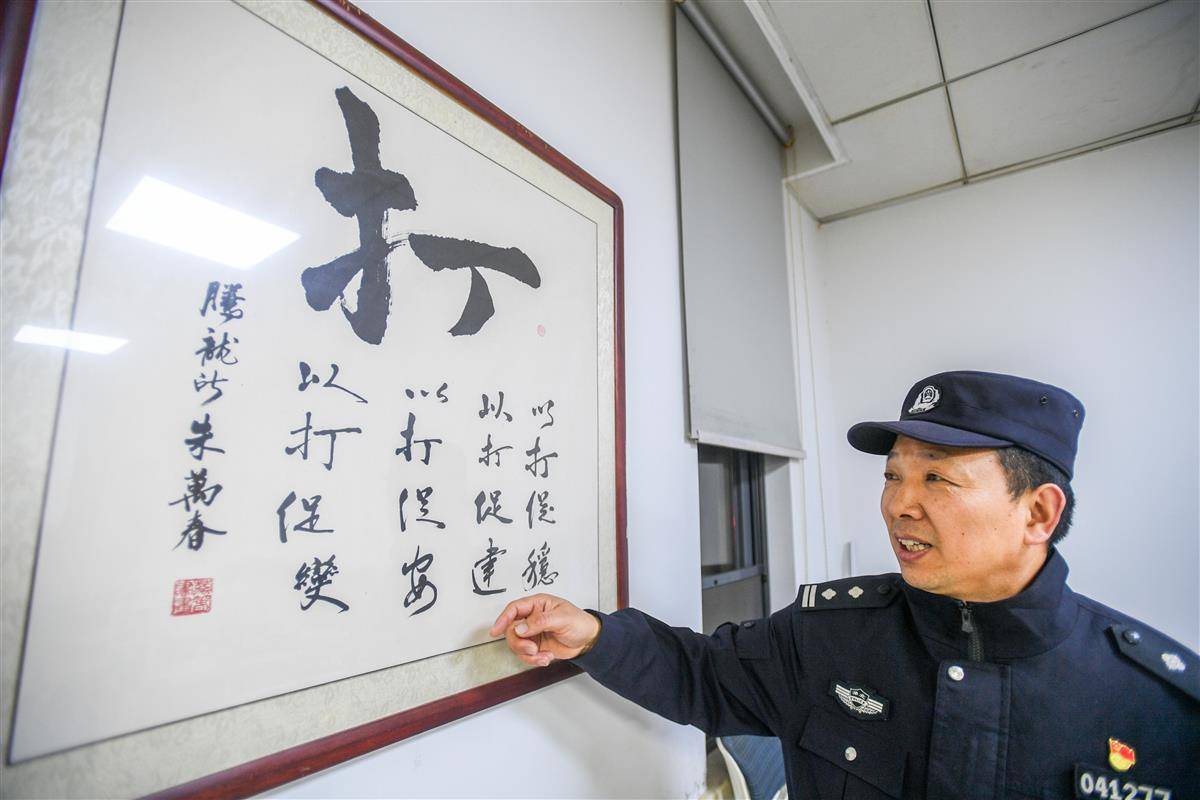 打
以打促穩
以打促建
以打促安
以打促變
騰龍所朱萬春
041277